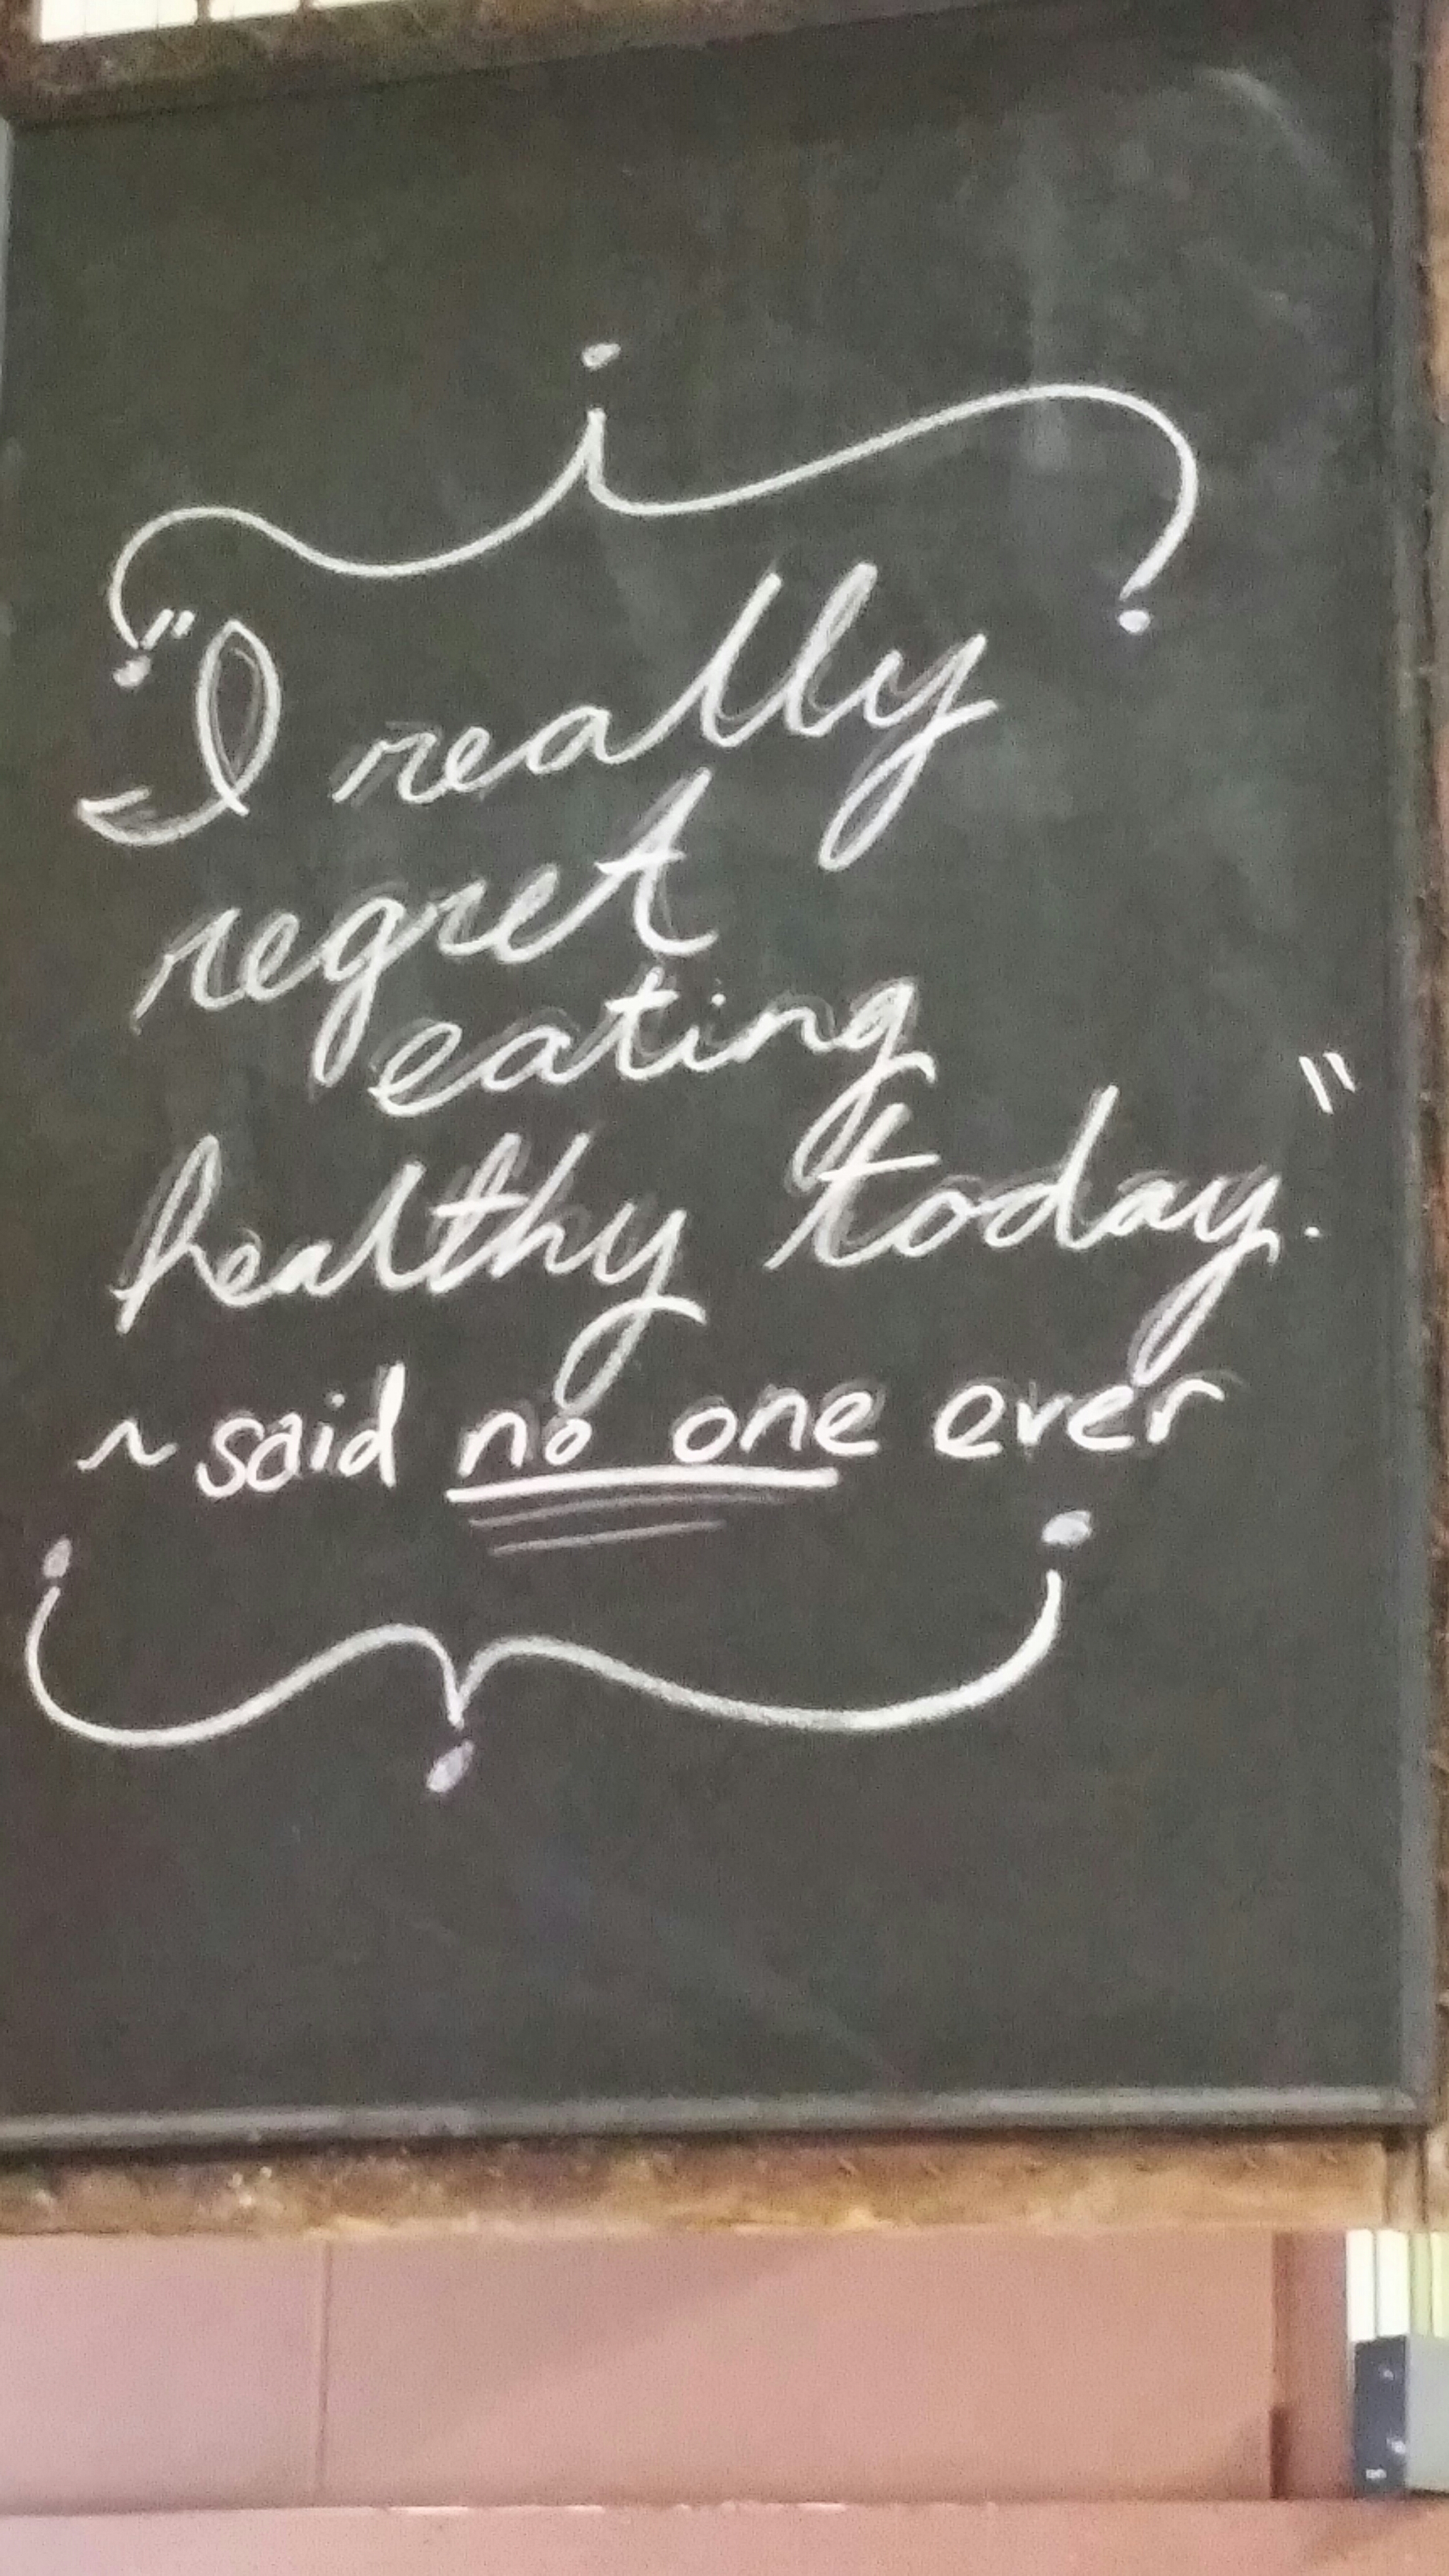 "I really
regret
eating
healthy today."
~ said no one ever